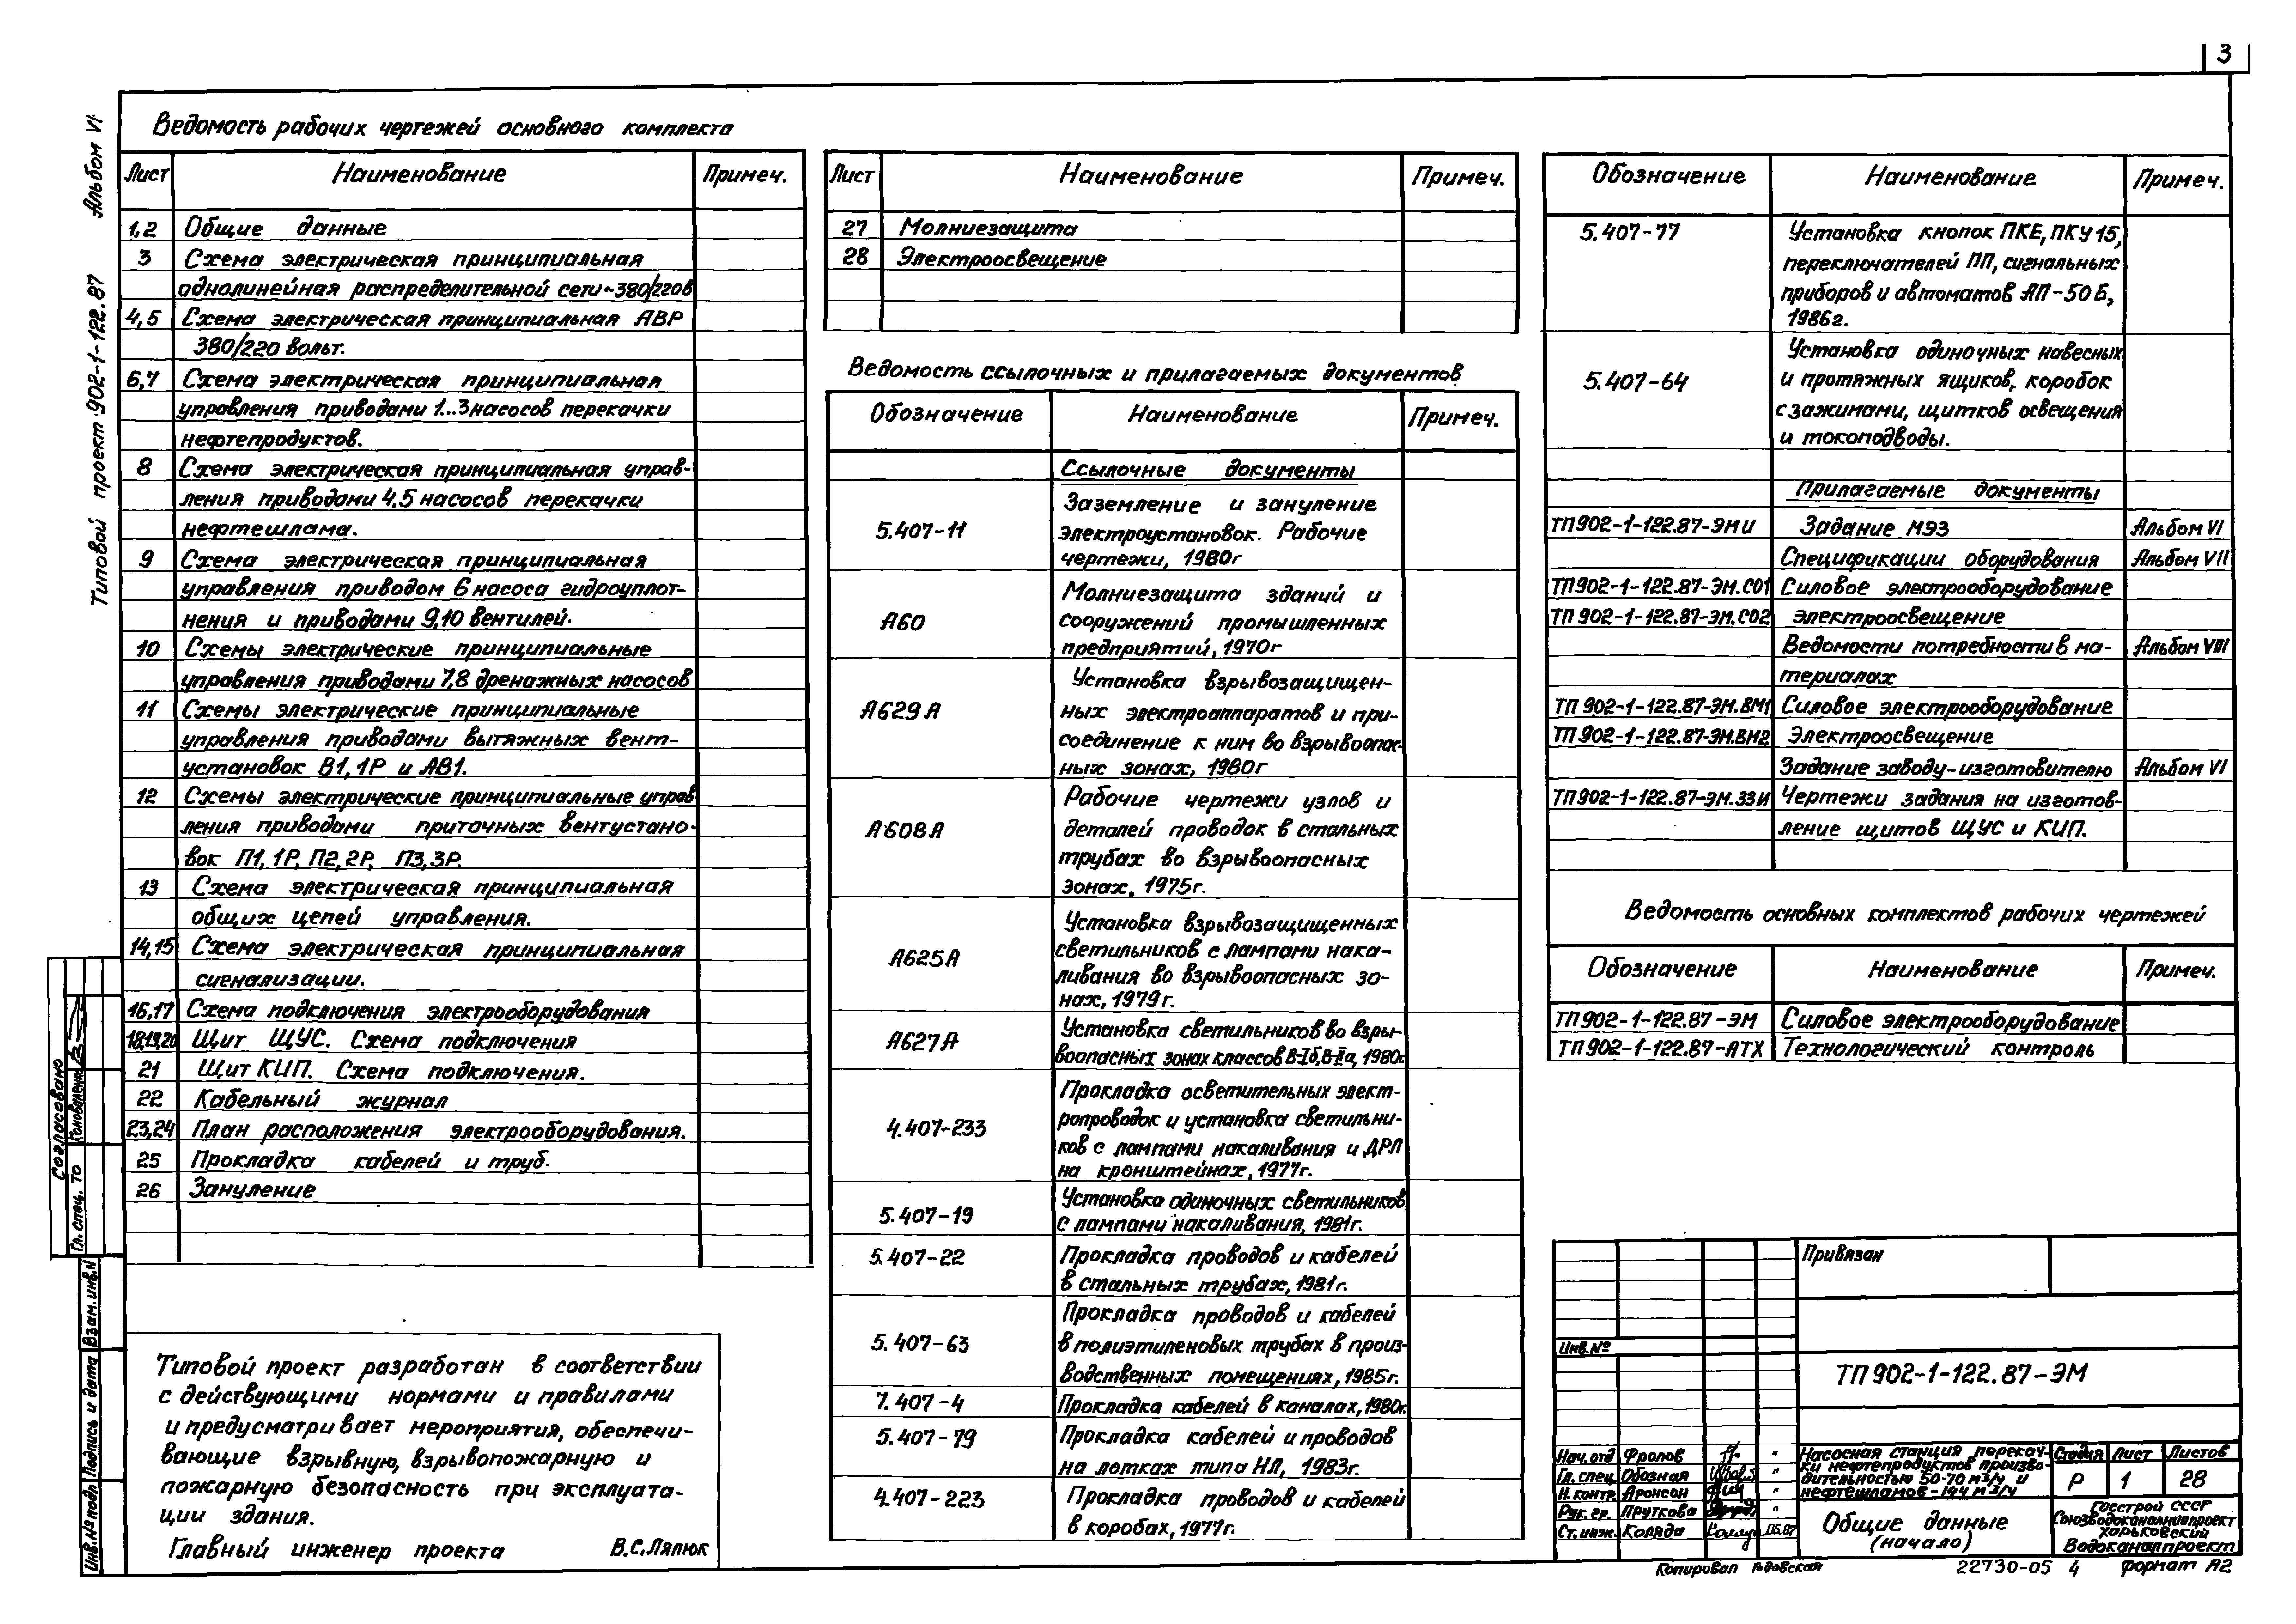 3
Альбом VI
Типовой проект 902-1-122.87
Ведомость рабочих чертежей основного комплекта
Лист Наименование Примеч.
1,2 Общие данные
3 Схема электрическая принципиальная
однолинейная распределительной сети ~380/220В
4,5 Схема электрическая принципиальная АВР
380/220 вольт.
6,7 Схема электрическая принципиальная
управления приводами 1...3 насосов перекачки
нефтепродуктов.
8 Схема электрическая принципиальная управ-
ления приводами 4,5 насосов перекачки
нефтешлама.
9 Схема электрическая принципиальная
управления приводом 6 насоса гидроуплот-
нения и приводами 9,10 вентилей.
10 Схемы электрические принципиальные
управления приводами 7,8 дренажных насосов
11 Схемы электрические принципиальные
управления приводами вытяжных вент-
установок В1, 1Р и АВ1.
12 Схемы электрические принципиальные управ-
ления приводами приточных вентустано-
вок П1, 1Р, П2, 2Р, П3, 3Р.
13 Схема электрическая принципиальная
общих цепей управления.
14,15 Схема электрическая принципиальная
сигнализации.
16,17 Схема подключения электрооборудования
18,19,20 Щит ЩУС. Схема подключения
21 Щит КИП. Схема подключения.
22 Кабельный журнал
23,24 План расположения электрооборудования.
25 Прокладка кабелей и труб.
26 Зануление
Типовой проект разработан в соответствии
с действующими нормами и правилами
и предусматривает мероприятия, обеспечи-
вающие взрывную, взрывопожарную и
пожарную безопасность при эксплуата-
ции здания.
Главный инженер проекта В.С.Ляпюк
Лист Наименование Примеч.
27 Молниезащита
28 Электроосвещение
Ведомость ссылочных и прилагаемых документов
Обозначение Наименование Примеч.
Ссылочные документы
5.407-11 Заземление и зануление
электроустановок. Рабочие
чертежи, 1980г
А60 Молниезащита зданий и
сооружений промышленных
предприятий, 1970г
А629А Установка взрывозащищен-
ных электроаппаратов и при-
соединение к ним во взрывоопас-
ных зонах, 1980г
А608А Рабочие чертежи узлов и
деталей проводок в стальных
трубах во взрывоопасных
зонах, 1975г.
А625А Установка взрывозащищенных
светильников с лампами нака-
ливания во взрывоопасных зо-
нах, 1979г.
А627А Установка светильников во взры-
воопасных зонах классов В-Iб, В-IIа, 1980г.
4.407-233 Прокладка осветительных элект-
ропроводок и установка светильни-
ков с лампами накаливания и ДРЛ
на кронштейнах, 1977г.
5.407-19 Установка одиночных светильников
с лампами накаливания, 1981г.
5.407-22 Прокладка проводов и кабелей
в стальных трубах, 1981г.
5.407-63 Прокладка проводов и кабелей
в полиэтиленовых трубах в произ-
водственных помещениях, 1985г.
7.407-4 Прокладка кабелей в каналах, 1980г.
5.407-79 Прокладка кабелей и проводов
на лотках типа НЛ, 1983г.
4.407-223 Прокладка проводов и кабелей
в коробах, 1977г.
Обозначение Наименование Примеч.
5.407-77 Установка кнопок ПКЕ, ПКУ 15,
переключателей ПП, сигнальных
приборов и автоматов АП-50Б,
1986г.
5.407-64 Установка одиночных навесных
и протяжных ящиков, коробок
с зажимами, щитков освещения
и токоподводы.
Прилагаемые документы
ТП902-1-122.87-ЭМИ Задание МЭЗ Альбом VI
Спецификации оборудования Альбом VII
ТП902-1-122.87-ЭМ.СО1 Силовое электрооборудование
ТП 902-1-122.87-ЭМ.СО2 Электроосвещение
Ведомости потребности в ма- Альбом VIII
териалах
ТП 902-1-122.87-ЭМ.ВМ1 Силовое электрооборудование
ТП 902-1-122.87-ЭМ.ВМ2 Электроосвещение
Задание заводу-изготовителю Альбом VI
ТП902-1-122.87-ЭМ.ЗЗИ Чертежи задания на изготов-
ление щитов ЩУС и КИП.
Ведомость основных комплектов рабочих чертежей
Обозначение Наименование Примеч.
ТП902-1-122.87-ЭМ Силовое электрооборудование
ТП902-1-122.87-АТХ Технологический контроль
Привязан
Инв.№
ТП 902-1-122.87-ЭМ
Нач.отд Фролов
Гл.спец Обозная
Н.контр. Аронсон
Рук.гр. Пруткова
Ст.инж. Коляда 06.87
Насосная станция перекач-
ки нефтепродуктов произво-
дительностью 50-70 м3/ч и
нефтешламов-144 м3/ч
Стадия Лист Листов
Р 1 28
Общие данные
(начало)
Госстрой СССР
Союзводоканалниипроект
Харьковский
Водоканалпроект
Копировал 22730-05 4 Формат А2
Согласовано
Гл. спец. ТО Коноваленко
Взам.инв.N
Подпись и дата
Инв.№ подл